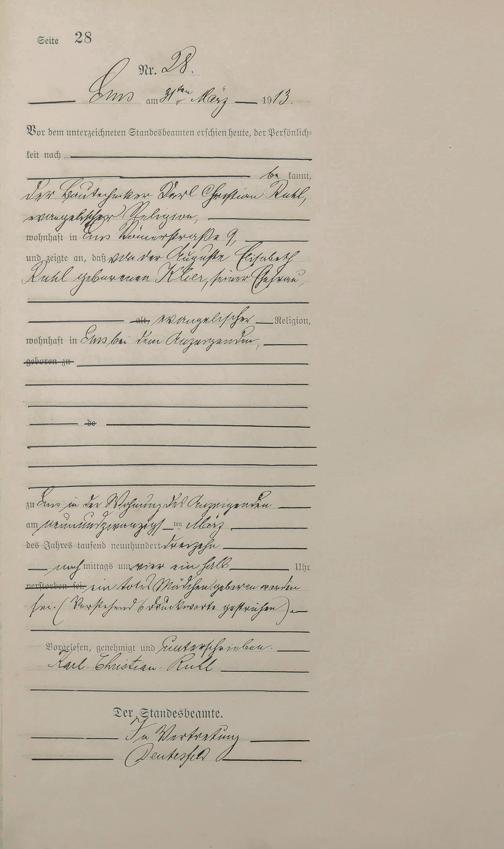 Seite 28
Nr. 28.
Ems am 31ten März 1913.
Vor dem unterzeichneten Standesbeamten erschien heute, der Persönlich-
keit nach
be kannt,
der Bautechniker Karl Christian Ruhl,
evangelischer Religion,
wohnhaft in Ems Römerstraße 9,
und zeigte an, daß von der Auguste Elisabeth
Ruhl geborenen Klier, seiner Ehefrau
alt, evangelischer Religion,
wohnhaft in Ems, bei dem Anzeigenden,
geboren zu
zu Ems in der Wohnung des Anzeigenden
am neunundzwanzigsten März
des Jahres tausend neunhundert dreizehn
nach mittags um vier ein halb Uhr
verstorben sei, ein totes Mädchen geboren worden
sei. (Vorstehend 6 Druckworte gestrichen)
Vorgelesen, genehmigt und unterschrieben.
Karl Christian Ruhl
Der Standesbeamte.
In Vertretung